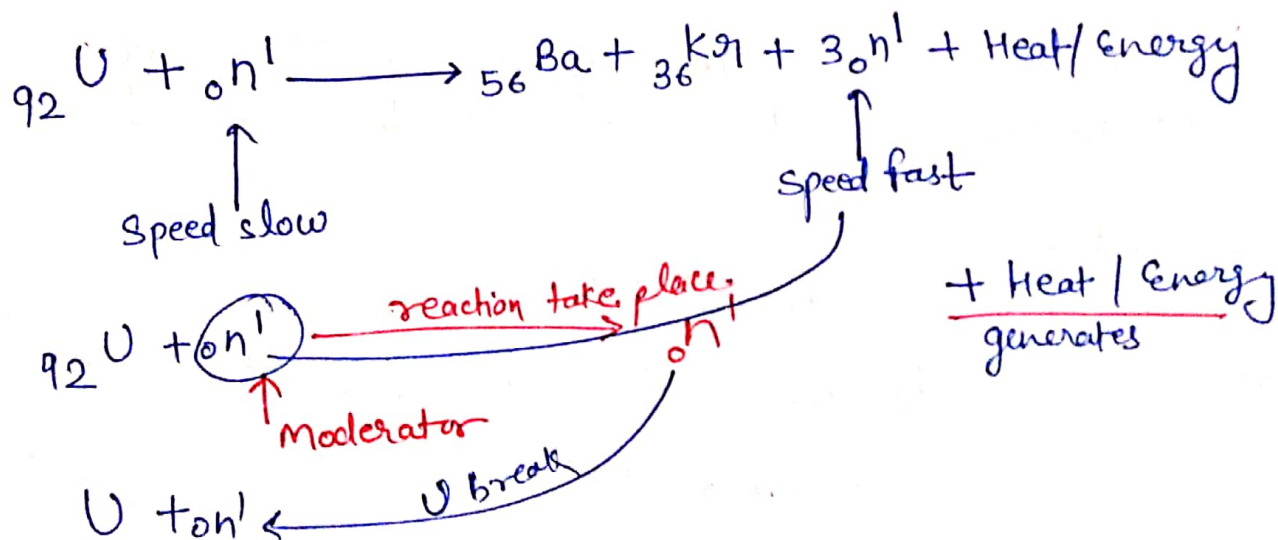 ₉₂U + ₀n¹ → ₅₆Ba + ₃₆Kr + 3₀n¹ + Heat/Energy
Speed slow
Speed fast
₉₂U + ₀n¹ reaction take place. ₀n¹
+ Heat / Energy
generates
Moderator
U + ₀n¹ U break